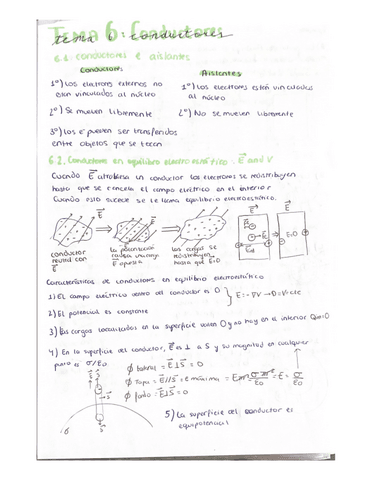 Tema 6: Conductores
tema 6: conductores
6.1. conductores e aislantes
Conductores
Aislantes
1º) Los electrones externos no
están vinculados al núcleo
1º) Los electrones están vinculados
al núcleo
2º) Se mueven libremente
2º) No se mueven libremente
3º) los e⁻ pueden ser transferidos
entre objetos que se tocan
6.2. Conductores en equilibrio electroestático: E⃗ and V
Cuando E⃗ atraviesa un conductor los electrones se redistribuyen
hasta que se cancela el campo eléctrico en el interior
Cuando esto sucede se le llama equilibrio electroestático.
conductor
neutral con
E⃗
la polarización
causa un campo
E⃗ opuesta
las cargas se
redistribuyen
hasta que E=0
E=0
Características de conductores en equilibrio electroestático
1) El campo eléctrico dentro del conductor es 0
E=-∇V → 0=V=cte
2) El potencial es constante
3) Las cargas localizadas en la superficie valen 0 y no hay en el interior Qin=0
4) En la superficie del conductor, E⃗ es ⊥ a S y su magnitud en cualquier
punto es σ/ε₀
E⃗⊥S⃗ = 0
ϕ Tapa = E⃗//S⃗ = e máxima =
ϕ fondo = E⃗⊥S⃗ = 0
5) La superficie del conductor es
equipotencial